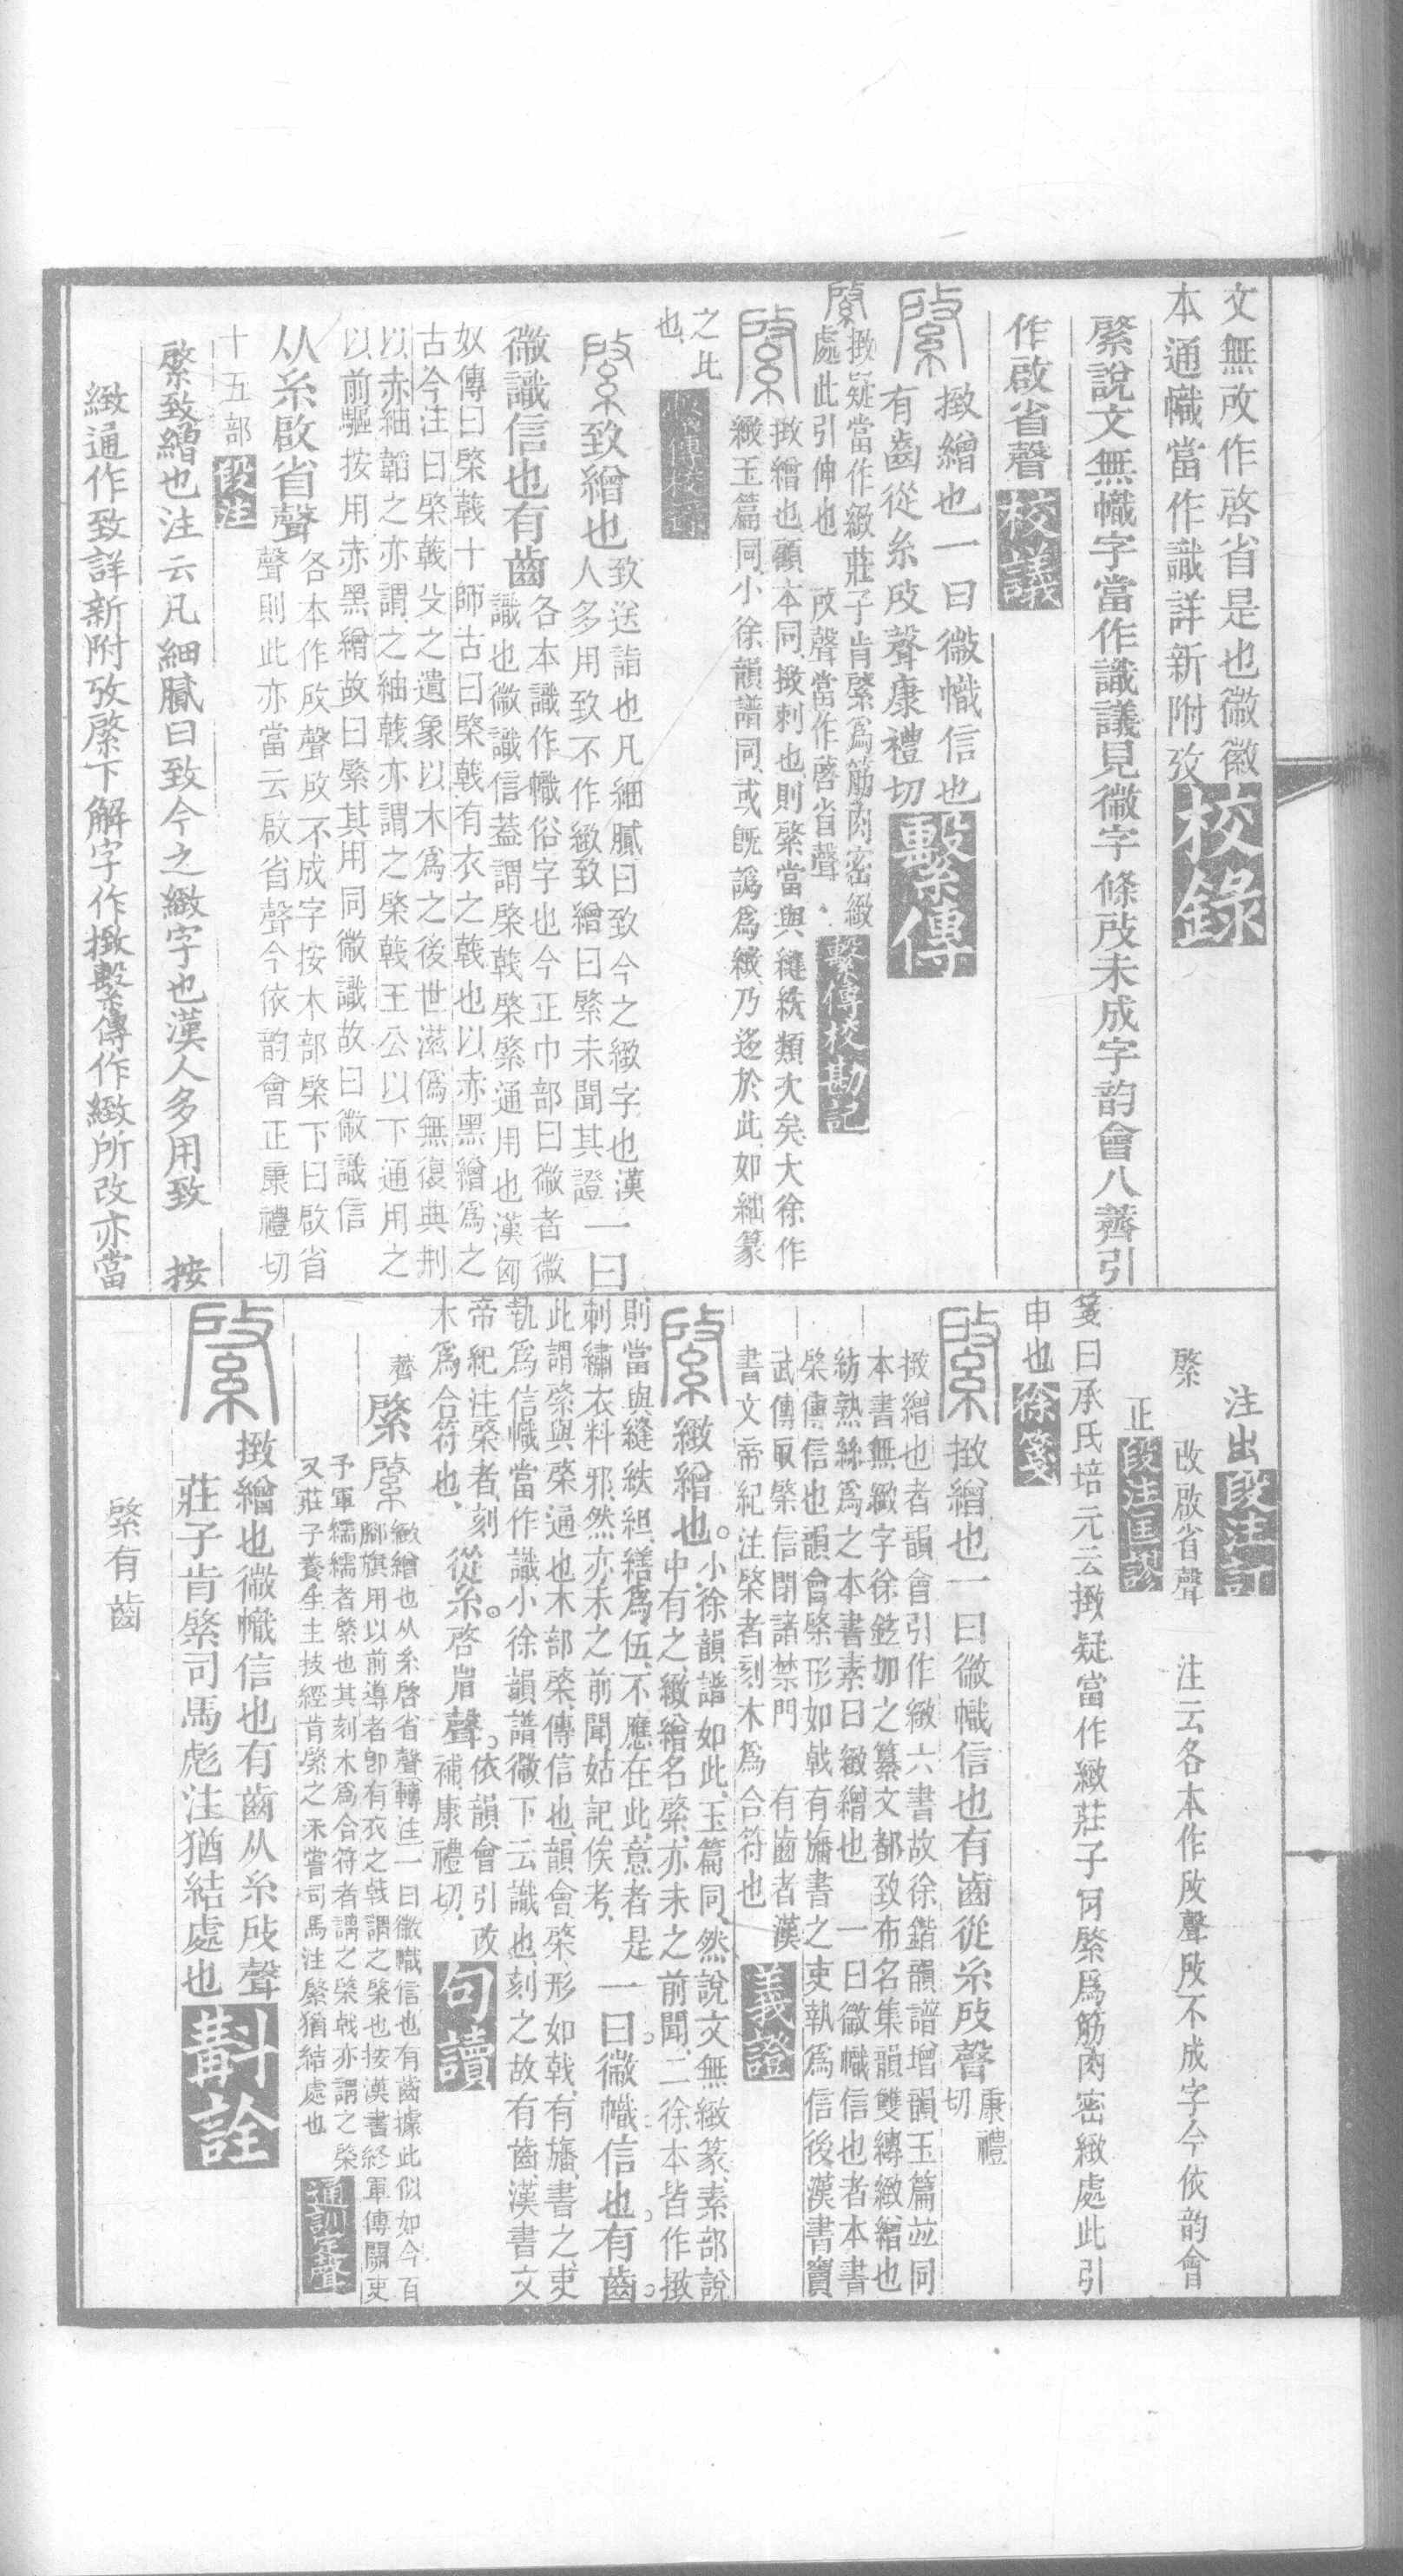 文無攺作啓省是也微徽
本通幟當作識詳新附攷校錄
綮說文無幟字當作識議見微字條攺未成字韵會八薺引
作啟省聲校議
綮
㨖繒也一曰微幟信也
有齒從糸攺聲康禮切繫傳
綮㨖疑當作緻莊子肯綮爲筋肉密緻
處此引伸也 攺聲當作啓省聲繫傳校勘記
綮
㨖繒也顧本同㨖刺也則綮當與縫紩類次矣大徐作
緻玉篇同小徐韻譜同或旣譌爲緻乃迻於此如絀篆
之比
也
綮致繒也
致送詣也凡細膩曰致今之緻字也漢
人多用致不作緻致繒曰綮未聞其證
一曰
微識信也有齒
各本識作幟俗字也今正巾部曰微者微
識也微識信蓋謂棨戟棨綮通用也漢匈
奴傳曰棨戟十師古曰棨戟有衣之戟也以赤黑繒爲之
古今注曰棨戟殳之遺象以木爲之後世滋僞無復典刑
以赤紬韜之亦謂之紬戟亦謂之棨戟王公以下通用之
以前驅按用赤黑繒故曰綮其用同微識故曰微識信
从糸啟省聲
各本作攺聲攺不成字按木部棨下曰啟省
聲則此亦當云啟省聲今依韵會正康禮切
十五部段注
綮致繒也注云凡細膩曰致今之緻字也漢人多用致 按
緻通作致詳新附攷綮下解字作㨖繫傳作緻所改亦當
注出段注訂
綮 改啟省聲 注云各本作攺聲攺不成字今依韵會
正段注匡謬
箋曰承氏培元云㨖疑當作緻莊子肯綮爲筋肉密緻處此引
申也徐箋
綮㨖繒也一曰微幟信也有齒從糸攺聲
康禮
切
㨖繒也者韻會引作緻六書故徐鍇韻譜增韻玉篇竝同
本書無緻字徐鉉加之纂文都致布名集韻雙縳緻繒也
紡熟絲爲之本書素曰緻繒也 一曰微幟信也者本書
棨傳信也韻會棨形如戟有旛書之吏執爲信後漢書竇
武傳取棨信閉諸禁門 有齒者漢
書文帝紀注棨者刻木爲合符也義證
綮緻繒也
小徐韻譜如此玉篇同然說文無緻篆素部說
中有之緻繒名綮亦未之前聞二徐本皆作㨖
則當與縫紩組繕爲伍不應在此意者是
刺繡衣料邪然亦未之前聞姑記俟考
一曰微幟信也有齒
此謂綮與棨通也木部棨傳信也韻會棨形如戟有旛書之吏
執爲信幟當作識小徐韻譜微下云識也刻之故有齒漢書文
帝紀注棨者刻
木爲合符也
從糸啓省聲
依韻會引改
補康禮切
句讀
薺
綮
綮
緻繒也从糸啓省聲轉注一曰微幟信也有齒據此似如今百
腳旗用以前導者卽有衣之戟謂之棨也按漢書終軍傳關吏
予軍繻繻者綮也其刻木爲合符者謂之棨戟亦謂之棨
又莊子養生主技經肯綮之未嘗司馬注綮猶結處也通訓定聲
綮
㨖繒也微幟信也有齒从糸攺聲
莊子肯綮司馬彪注猶結處也斠詮
綮有齒